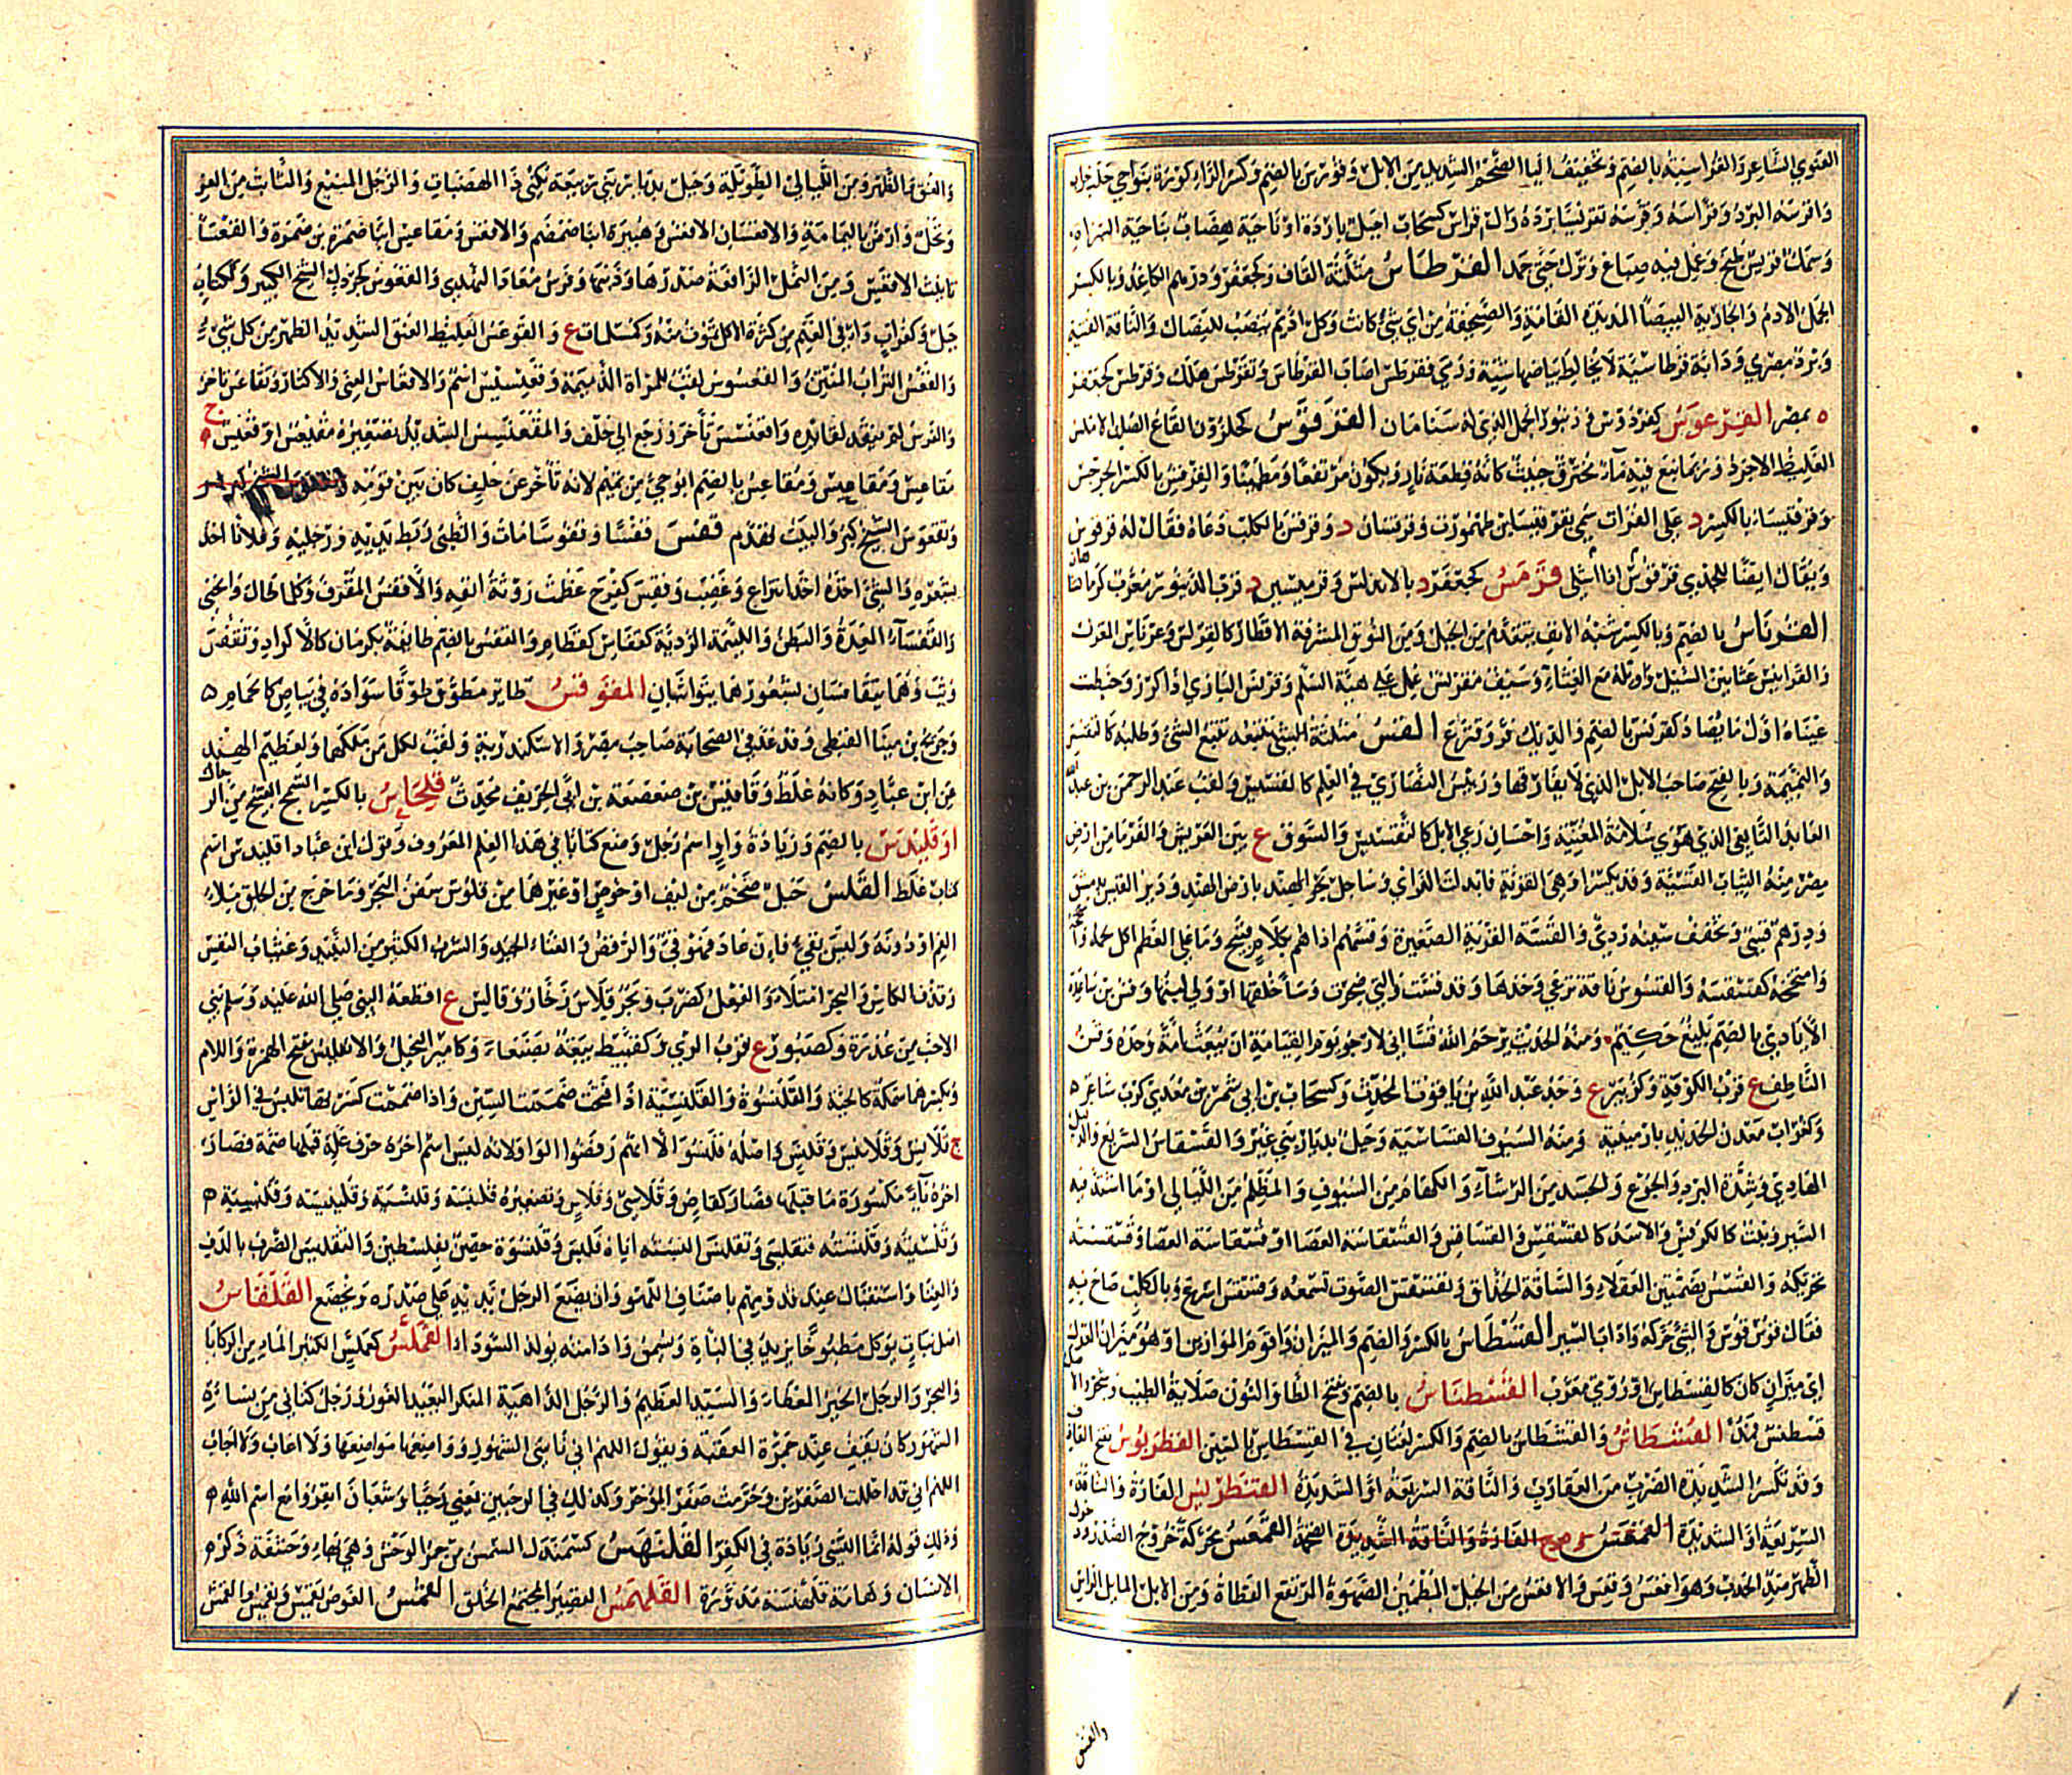 الغنوي الشاعر والقراسية بالضم وتخفيف اليا الضخم الشديد من الابل وقورس بالضم وكسر الراء كورة بنواحي حلب
واقرسه البرد وقرسه تقريسا برده وال قراس كسحاب اجبل باردة او ناحية هضاب بناحية السراة
وسمك قريس طبخ وعمل فيه صباغ وترك حتى جمد القرطاس مثلثة القاف وكجعفر ودرهم الكاغد وبالكسر
الجمل الادم والجارية البيضا المديدة القامة والصحيفة من اي شي كانت وكل اديم ينصب للنضال والناقة الفتية
وبرد مصري ودابة قرطاسية لا يخالط بياضها شية ورمى فقرطس اصاب القرطاس وتقرطس هلك وقرطس كجعفر
ه بمصر القرعوس كفردوس وزنبور الجمل الذي له سنامان القرقوس كحلزون القاع الصلب الاملس
الغليظ الاجرد وربما نبع فيه ماء محترق خبيث كانه قطعة نار ويكون مرتفعا ومطمئنا والقرقس بالكسر الجرجس
وقرقيساء بالكسر د على الفرات سمي بقرقيسا بن طهمورث وقرقسان د وقرقس بالكلب دعاه فقال له قرقوس
ويقال ايضا للجدي قرقوس اذا اشلي قرمس كجعفر د بالاندلس وقرميسين د قرب الدينور معرب كرمانشاهان
القرناس بالضم وبالكسر شبه الانف يتقدم من الجبل ومن النوق المشرفة الاقطار كالقرنس وعرناس المغزل
والقرانيس عثانين السيل واوائله مع الغثاء وسيف مقرنس عمل على هيئة السلم وقرنس البازي اذا كرز وخيطت
عيناه اول ما يصاد كقرنس بالضم والديك فر وقنزع القس مثلثة تتبع الشي وطلبه كالتقسس
والنميمة وبالفتح صاحب الابل الذي لا يفارقها ورئيس النصارى في العلم كالقسيس ولقب عبد الرحمن بن عبد الله
العابد التابعي الذي هوي سلامة المغنية واحسان رعي الابل كالتقسيس والسوق ع بين العريش والفرما من ارض
مصر منه الثياب القسية وقد يكسر او هي القزية فابدلت الزاي وساحل بحر الهند بارض الهند ودير القس بدمشق
ودرهم قسي وتخفف سينه ردي والقسة القربة الصغيرة وقسهم اذاهم بكلام قبيح وما على العظم اكل لحمه
وامتخخه كقسقسه والقسوس ناقة ترعى وحدها وقد قست والتي ضجرت وساء خلقها او ولى لبنها وقس بن ساعدة
الايادي بالضم بليغ حكيم ومنه الحديث يرحم الله قسا اني لارجو يوم القيامة ان يبعث امة وحده وقس
الناطف ع قرب الكوفة وكزبير ع وجد عبد الله بن ياقوت المحدث وكسحاب بن ابي شمر بن معدي كرب شاعر
وكغراب معدن الحديد بارمينية ومنه السيوف القساسية وجبل بديار بني نمير والقسقاس السريع والدليل
الهادي وشدة البرد والجوع والجيد من الرشاء والكهام من السيوف والمظلم من الليالي او ما اشتد فيه
السير ونبت كالكرفس والاسد كالقسقس والقساقس والقسقاسة العصا او قسقاسة العصا وقسقسته
تحريكه والقسس بضمتين العقلاء والساقة الحذاق وتقسقس الصوت تسمعه وقسقس اسرع وبالكلب صاح به
فقال قوس قوس والشي حركه وادأب السير القسطاس بالكسر والضم والميزان واقوم الموازين او هو ميزان العدل
اي ميزان كان كالقسطاس او رومي معرب القسطناس بالضم وفتح الطا والنون صلابة الطيب وشجر والاصل
قسطنس فمد القسنطاس والقسطاس بالضم والكسر لغتان في القسطاس بالسين القطربوس بفتح القاف
وقد تكسر الشديدة الضرب من العقارب والناقة السريعة او الشديدة القنطريس الفارة والناقة
السريعة او الشديدة القعس محركة خروج الصدر ودخول
الظهر ضد الحدب وهو اقعس وقعس والاقعس من الخيل المطمئن الصهوة المرتفع القطاة ومن الابل المايل الراس
والقس
والعنق والظهر ومن الليالي الطويلة وجبل بديار بني ربيعة يكنى ذا الهضبات والرجل المنيع والثابت من العز
ونخل وارض باليمامة والاقعسان الاقعس وهبيرة ابنا ضمضم والاقعس ومقاعس ابنا ضمرة بن ضمرة والقعساء
تانيث الاقعس ومن النمل الرافعة صدرها وذنبها وفرس معاذ النهدي والقعوس كجرول الشيخ الكبير وككتاب
جبل وكغراب داء في الغنم من كثرة الاكل تموت منه وكسلمات ع والقوعس الغليظ العنق الشديد الظهر من كل شي
والقعس التراب المنتن والقعسوس لقب للمراة الذميمة وقعيسيس اسم والاقعاس الغنى والاكثار وتقاعس تاخر
والفرس لم ينقد لقايده واقعنسس تأخر ورجع الى خلف والمقعنسس الشديد تصغيره مقيعس او قعيس ج
مقاعس ومقاعيس ومقاعس بالضم ابو حي من تميم لانه تأخر عن حلف كان بين قومه
وتقعوس الشيخ كبر والبيت تهدم قفس قفسا وقفوسا مات والظبي ربط يديه ورجليه وفلانا اخذ
بشعره والشي اخذه اخذ انتزاع وغضب وقفس كفرح عظمت روثة انفه والاقفس المقرف وكل ما طال وانحنى
والقفساء المعدة والبطن واللئيمة الردية كقفاس كقطام والقفس بالضم طائفة بكرمان كالاكراد وتقفس
وثب وهما يتقافسان بشعورهما يتواثبان المقوقس طاير مطوق طوقا سواده في بياض كالحمام
وجريج بن مينا القبطي وقد عد في الصحابة صاحب مصر والاسكندرية ولقب لكل من ملكهما ولعظيم الهند
عن ابن عباد وكانه غلط وقاقيس بن صعصعة بن ابي الخريف محدث قلحاس بالكسر السمج القبيح من الرجال
اوقليدس بالضم وزيادة واو اسم رجل وضع كتابا في هذا العلم المعروف وقول ابن عباد اقليدس اسم
كتاب غلط القلس حبل ضخم من ليف او خوص او غيرهما من قلوس سفن البحر وما خرج من الحلق ملاء
الفم او دونه وليس بقيء فان عاد فهو قيء والرقص والغناء الجيد والشرب الكثير من النبيذ وغثيان النفس
وقذف الكاس والبحر امتلاء والفعل كضرب وبحر قلاس زخار وقالس ع اقطعه النبي صلى الله عليه وسلم بني
الاحب من عذرة وكصبور ع قرب الري وكقبيط بيعة بصنعاء وكامير البخيل والانقليس بفتح الهمزة واللام
وبكسرهما سمكة كالحية والقلنسوة والقلنسية اذا فتحت ضممت السين واذا ضممت كسرتها تلبس في الراس
ج قلانس وقلانيس وقلنس واصله قلنسو الا انهم رفضوا الواو لانه ليس اسم اخره حرف علة قبلها ضمة فصار
اخره ياء مكسورة ما قبلها فصار كقاض وقلاسي وقلاس وتصغيره قلينسة وقليسية وقلينيسة وقلنيسية
وقلسيته وقلنسته فتقلسى وتقلنس البسته اياه فلبس وقلنسوة حصن بفلسطين والتقليس الضرب بالدف
والغنا واستقبال عند قدومهم باصناف اللهو وان يضع الرجل يديه على صدره ويخضع القلقاس
اصل نبات يوكل مطبوخا يزيد في الباءة ويسمن وادامته يولد السودا القلمس كعملس الكثير الماء من الركايا
والبحر والرجل الخير المعطاء والسيد العظيم والرجل الداهية المنكر البعيد الغور ورجل كناني من نسأة
الشهور كان يقف عند جمرة العقبة ويقول اللهم اني ناسئ الشهور وواضعها مواضعها ولا اعاب ولا اجاب
اللهم اني قد احللت الصفرين وحرمت صفر المؤخر وكذلك في الرجبين يعني رجبا وشعبان انفروا مع اسم الله
وذلك قوله انما النسي زيادة في الكفر القلهبس كشمردل المسن من حمر الوحش وهي بهاء وحشفة ذكر
الانسان وهامة قلهبسة مدورة القلهمس القصير المجتمع الخلق القمس الغوص يقمس ويقمس والغمس